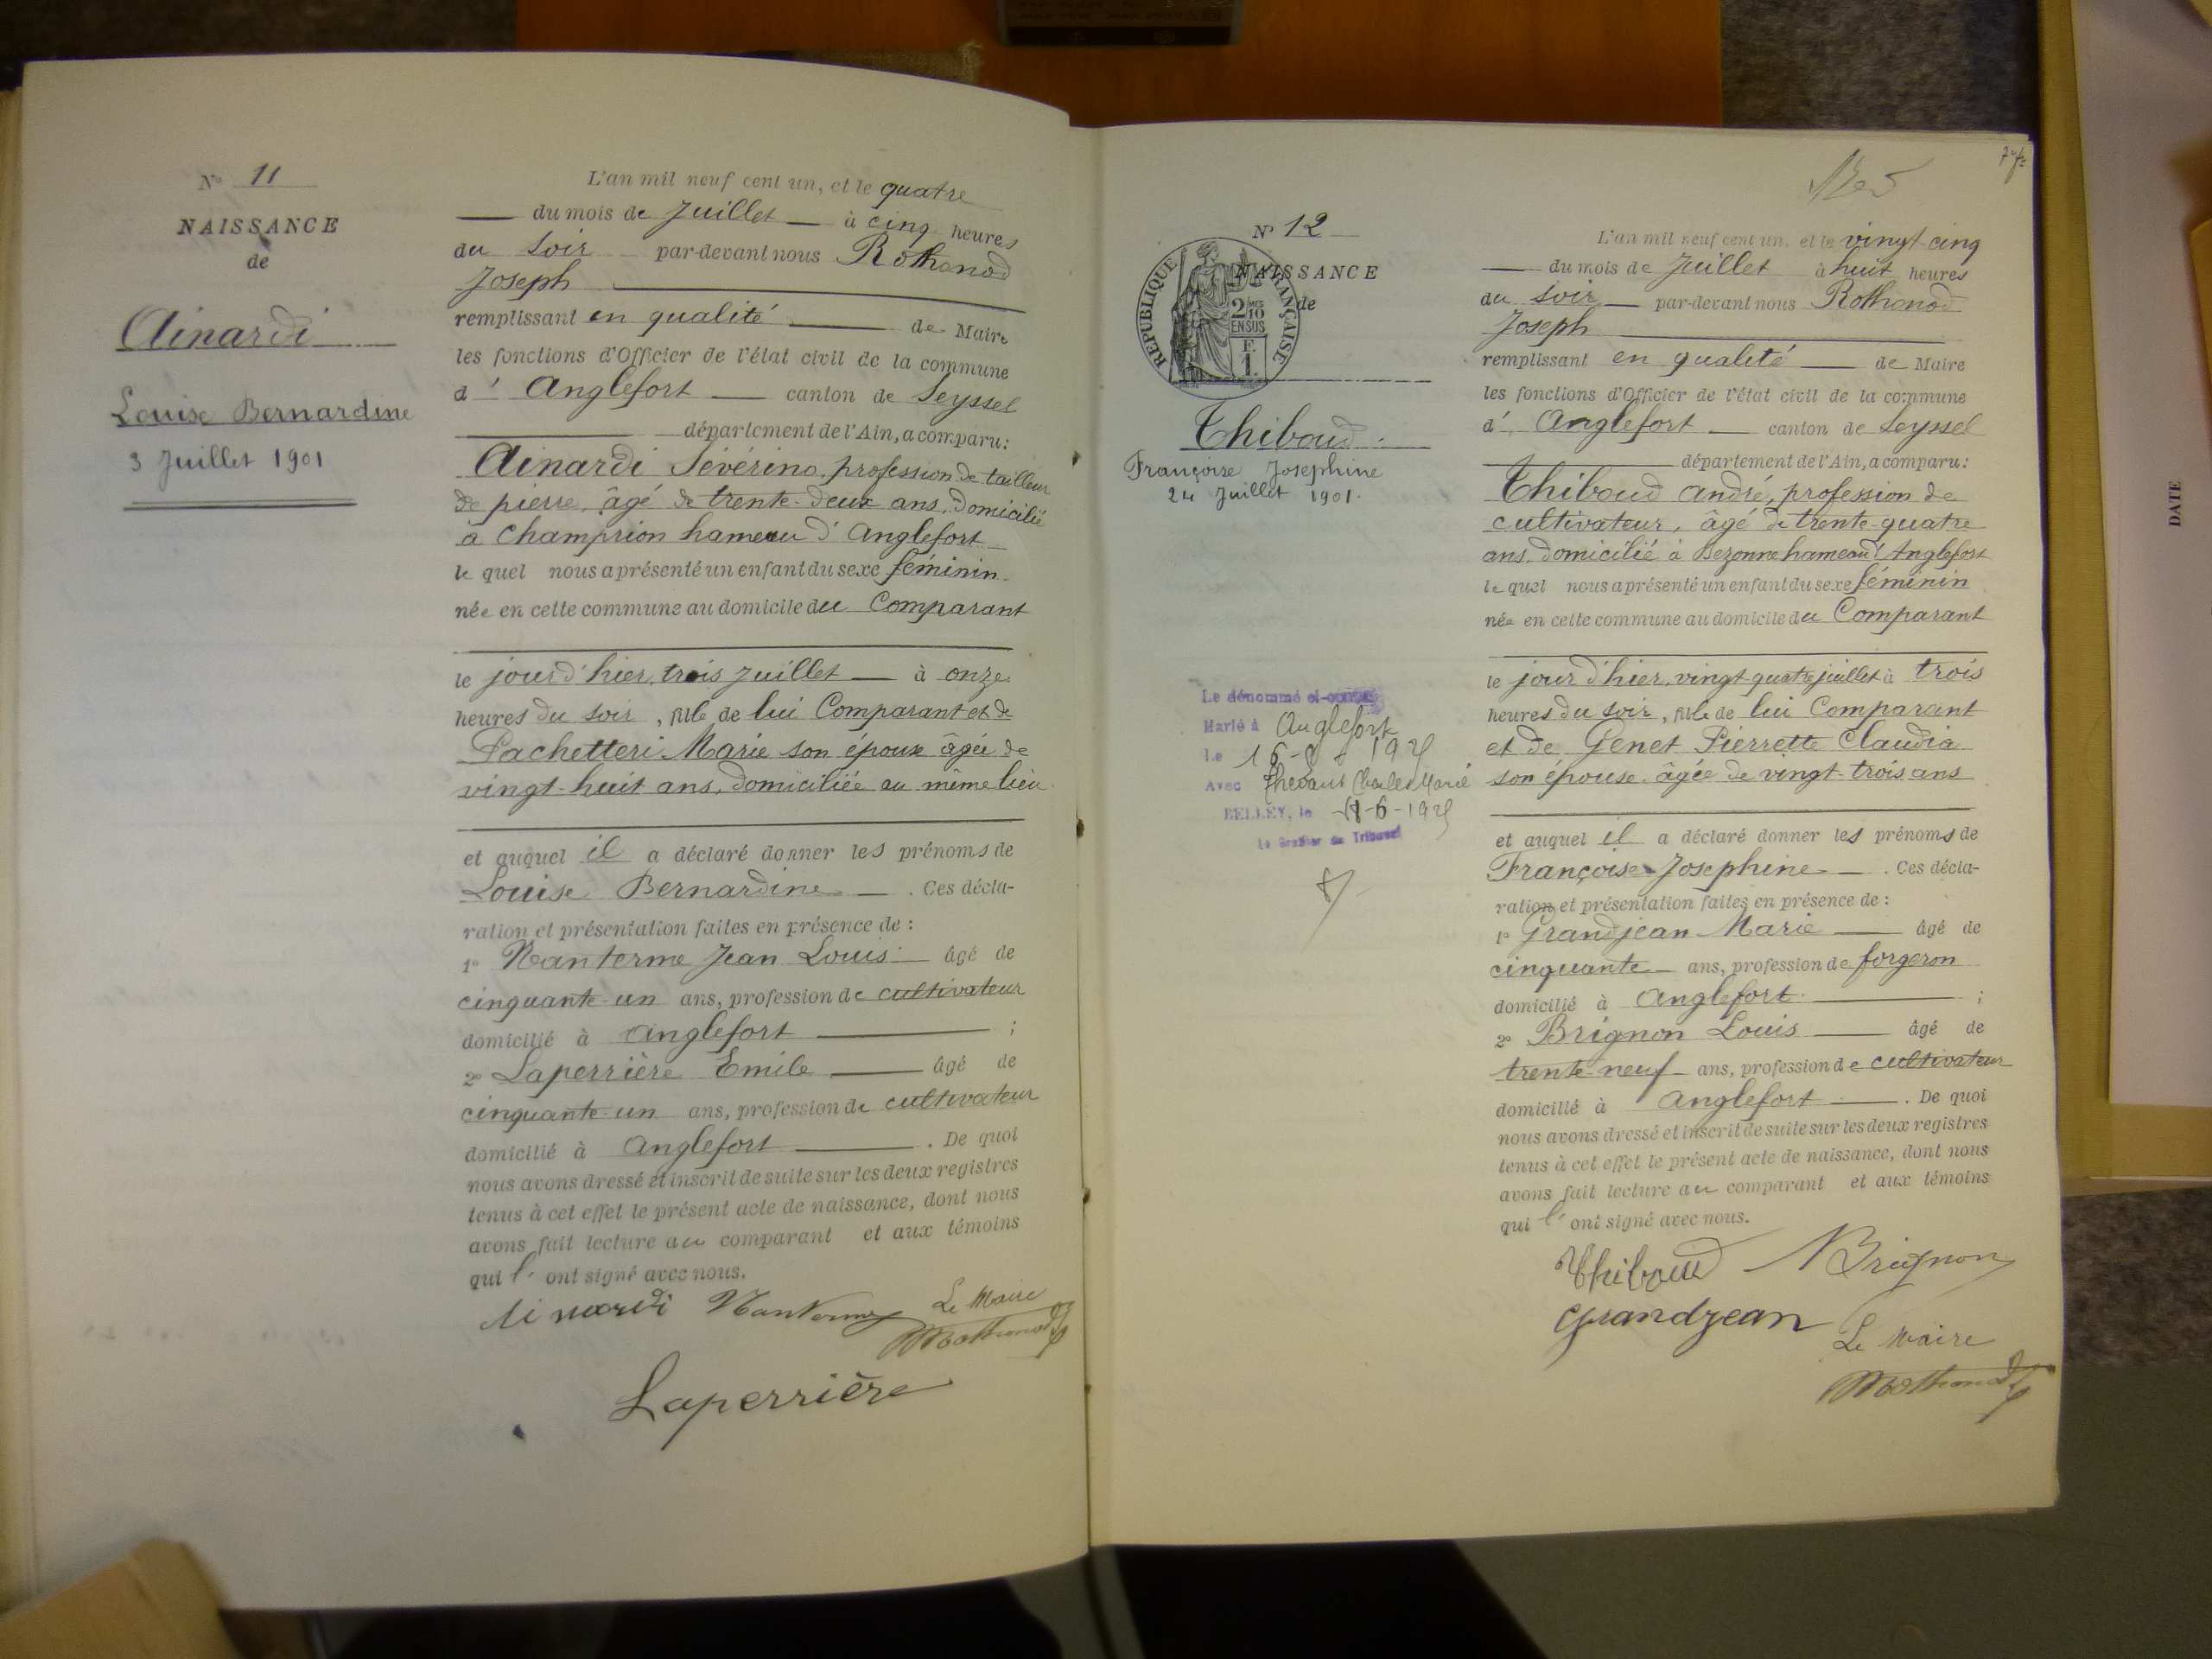 N° 11
NAISSANCE
de
Ainardi
Louise Bernardine
3 Juillet 1901
L'an mil neuf cent un, et le quatre
du mois de Juillet à cinq heures
du soir par-devant nous Rothonod
Joseph
remplissant en qualité de Maire
les fonctions d'Officier de l'état civil de la commune
d' Anglefort canton de Seyssel
département de l'Ain, a comparu:
Ainardi Sévérino, profession de tailleur
de pierre, âgé de trente-deux ans, domicilié
à Champrion hameau d'Anglefort
le quel nous a présenté un enfant du sexe féminin
née en cette commune au domicile du Comparant
le jour d'hier, trois juillet à onze
heures du soir, fille de lui Comparant et de
Pachetteri Marie son épouse âgée de
vingt-huit ans, domiciliée au même lieu
et auquel il a déclaré donner les prénoms de
Louise Bernardine. Ces décla-
ration et présentation faites en présence de:
1° Nanterme Jean Louis âgé de
cinquante-un ans, profession de cultivateur
domicilié à Anglefort ;
2° Laperrière Emile âgé de
cinquante-un ans, profession de cultivateur
domicilié à Anglefort. De quoi
nous avons dressé et inscrit de suite sur les deux registres
tenus à cet effet le présent acte de naissance, dont nous
avons fait lecture au comparant et aux témoins
qui l' ont signé avec nous.
Ainardi Nanterme Le Maire
Rothonod
Laperrière
N° 12
NAISSANCE
de
RÉPUBLIQUE FRANÇAISE
2 MES
10
EN SUS
F.
1.
Thiboud
Françoise Josephine
24 Juillet 1901.
Le dénommé ci-contre
Marié à Anglefort
Le
Avec Charles Marie
BELLEY, le
Le Greffier du Tribunal
L'an mil neuf cent un, et le vingt-cinq
du mois de Juillet à huit heures
du soir par-devant nous Rothonod
Joseph
remplissant en qualité de Maire
les fonctions d'Officier de l'état civil de la commune
d' Anglefort canton de Seyssel
département de l'Ain, a comparu:
Thiboud André, profession de
cultivateur, âgé de trente-quatre
ans, domicilié à Bezonne hameau d'Anglefort
le quel nous a présenté un enfant du sexe féminin
née en cette commune au domicile du Comparant
le jour d'hier, vingt quatre juillet à trois
heures du soir, fille de lui Comparant
et de Genet Pierrette Claudia
son épouse âgée de vingt-trois ans
et auquel il a déclaré donner les prénoms de
Françoise Josephine. Ces décla-
ration et présentation faites en présence de:
1° Grandjean Marie âgé de
cinquante ans, profession de forgeron
domicilié à Anglefort ;
2° Brignon Louis âgé de
trente-neuf ans, profession de cultivateur
domicilié à Anglefort. De quoi
nous avons dressé et inscrit de suite sur les deux registres
tenus à cet effet le présent acte de naissance, dont nous
avons fait lecture au comparant et aux témoins
qui l' ont signé avec nous.
Thiboud Brignon
Grandjean Le Maire
Rothonod
DATE